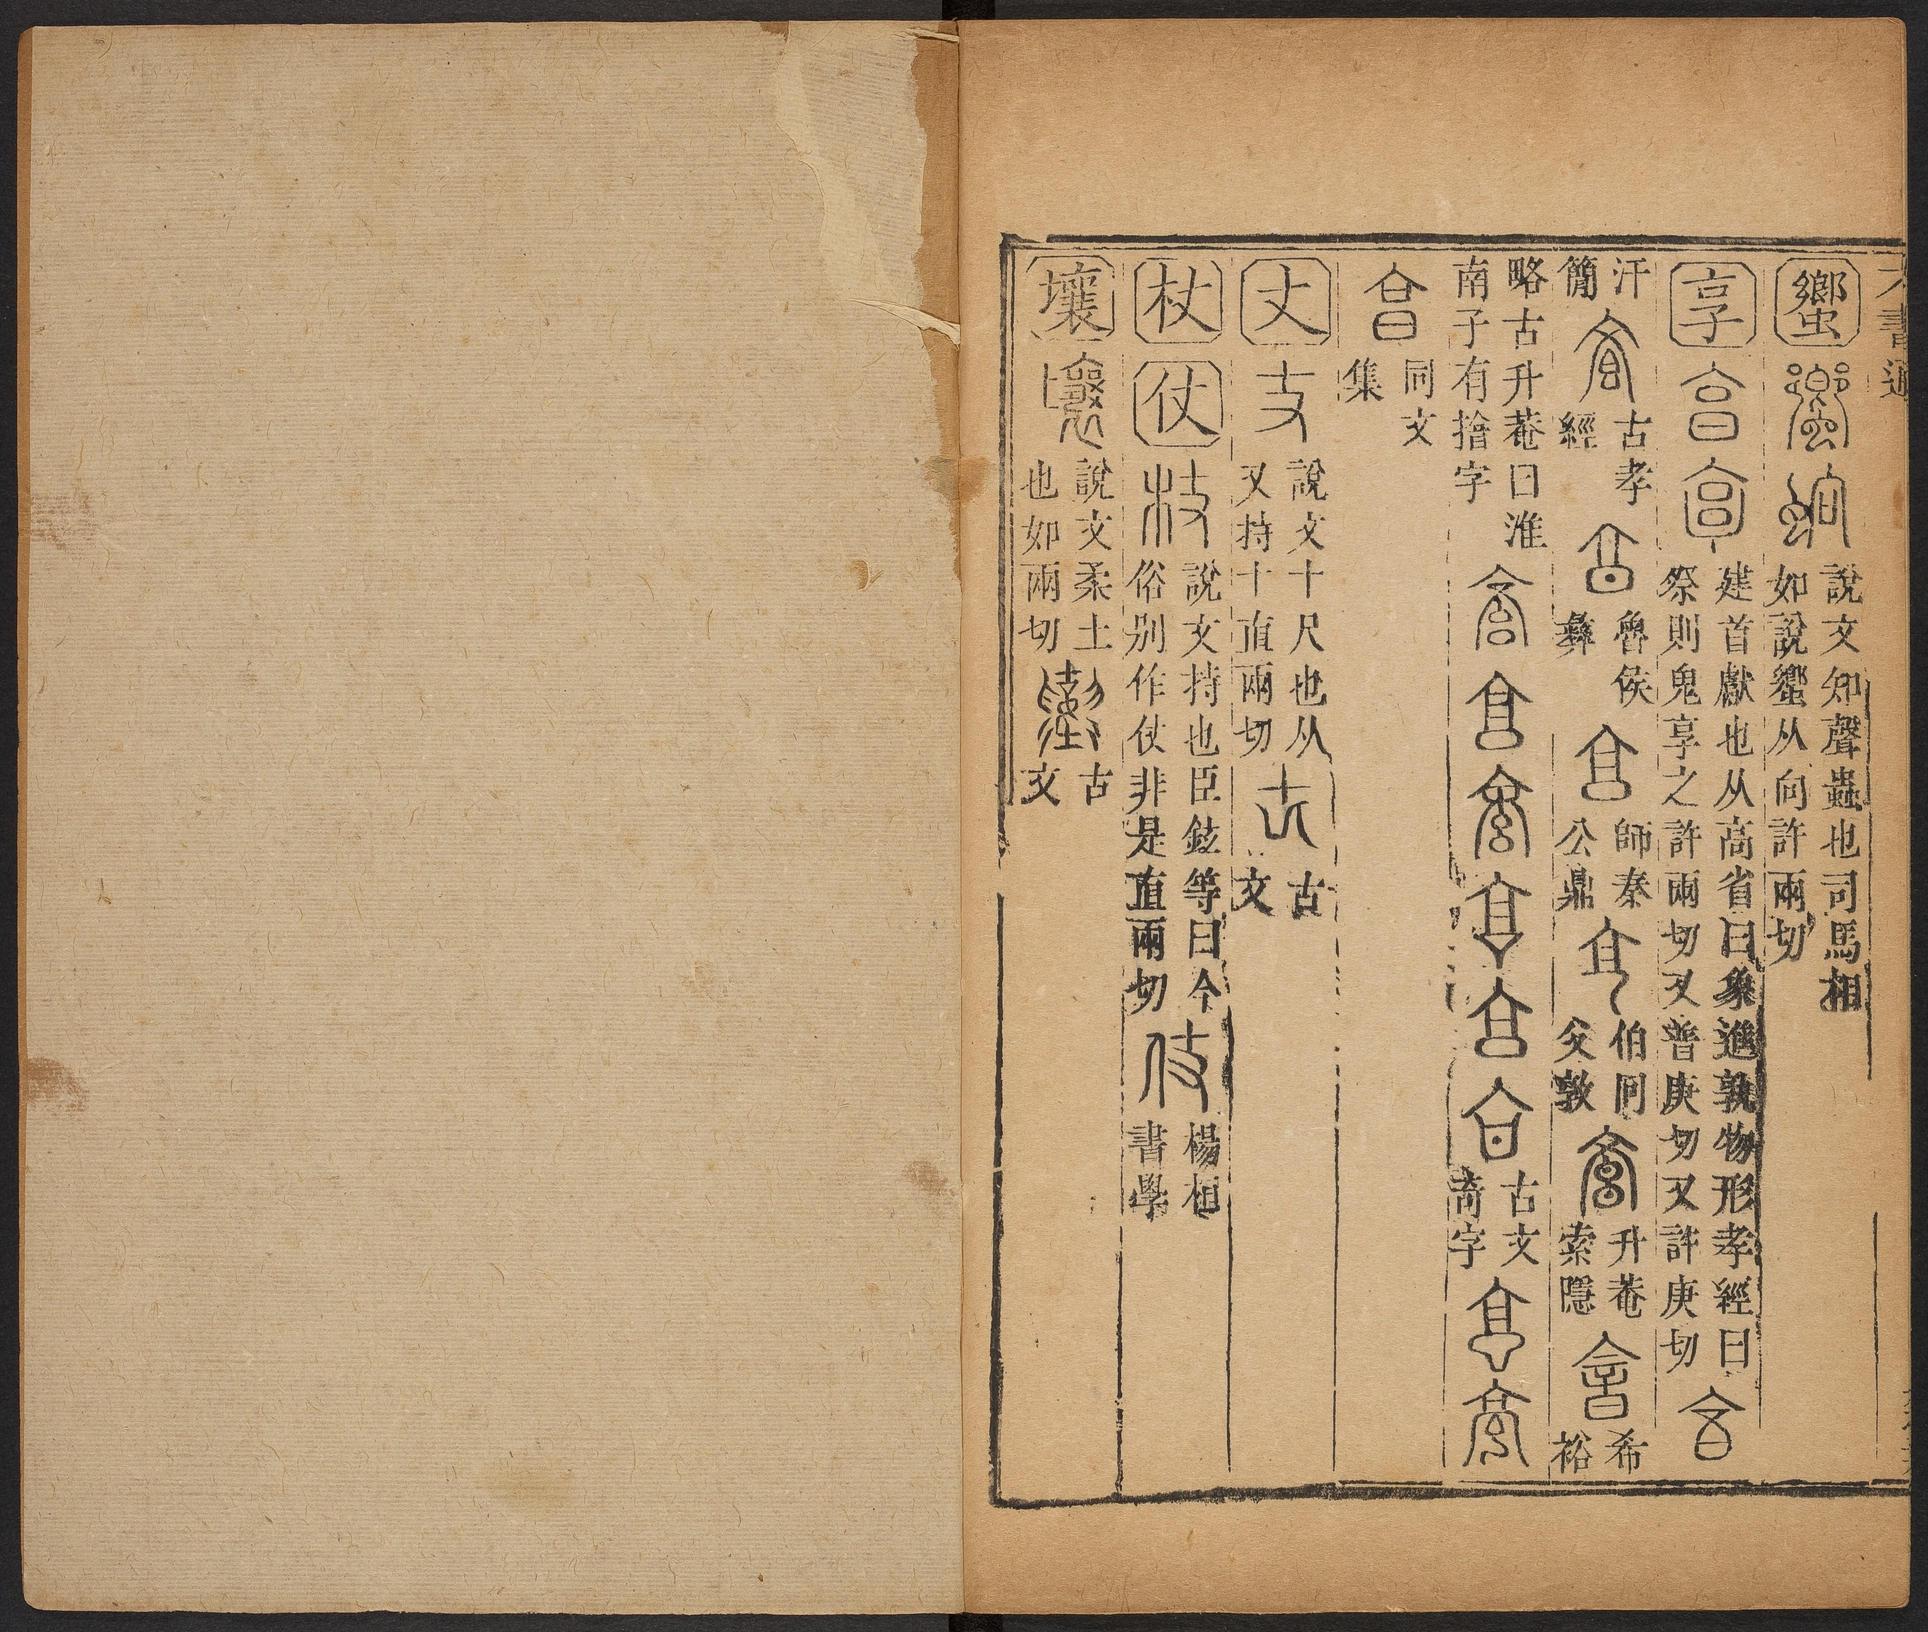 六書通
蠁 說文知聲蟲也司馬相
如說蠁从向許兩切
享 建首獻也从高省曰象進孰物形孝經曰
祭則鬼享之許兩切又普庚切又許庚切
汗
簡 古孝
經 魯侯
彝 師秦
公鼎 伯冏
父敦 升菴
索隱 希
裕
略古升菴曰淮
南子有㩀字 古文
奇字
同文
集
丈 說文十尺也从
又持十直兩切 古
文
杖 仗 說文持也臣鉉等曰今
俗別作仗非是直兩切 楊桓
書學
壤 說文柔土
也如兩切 古
文